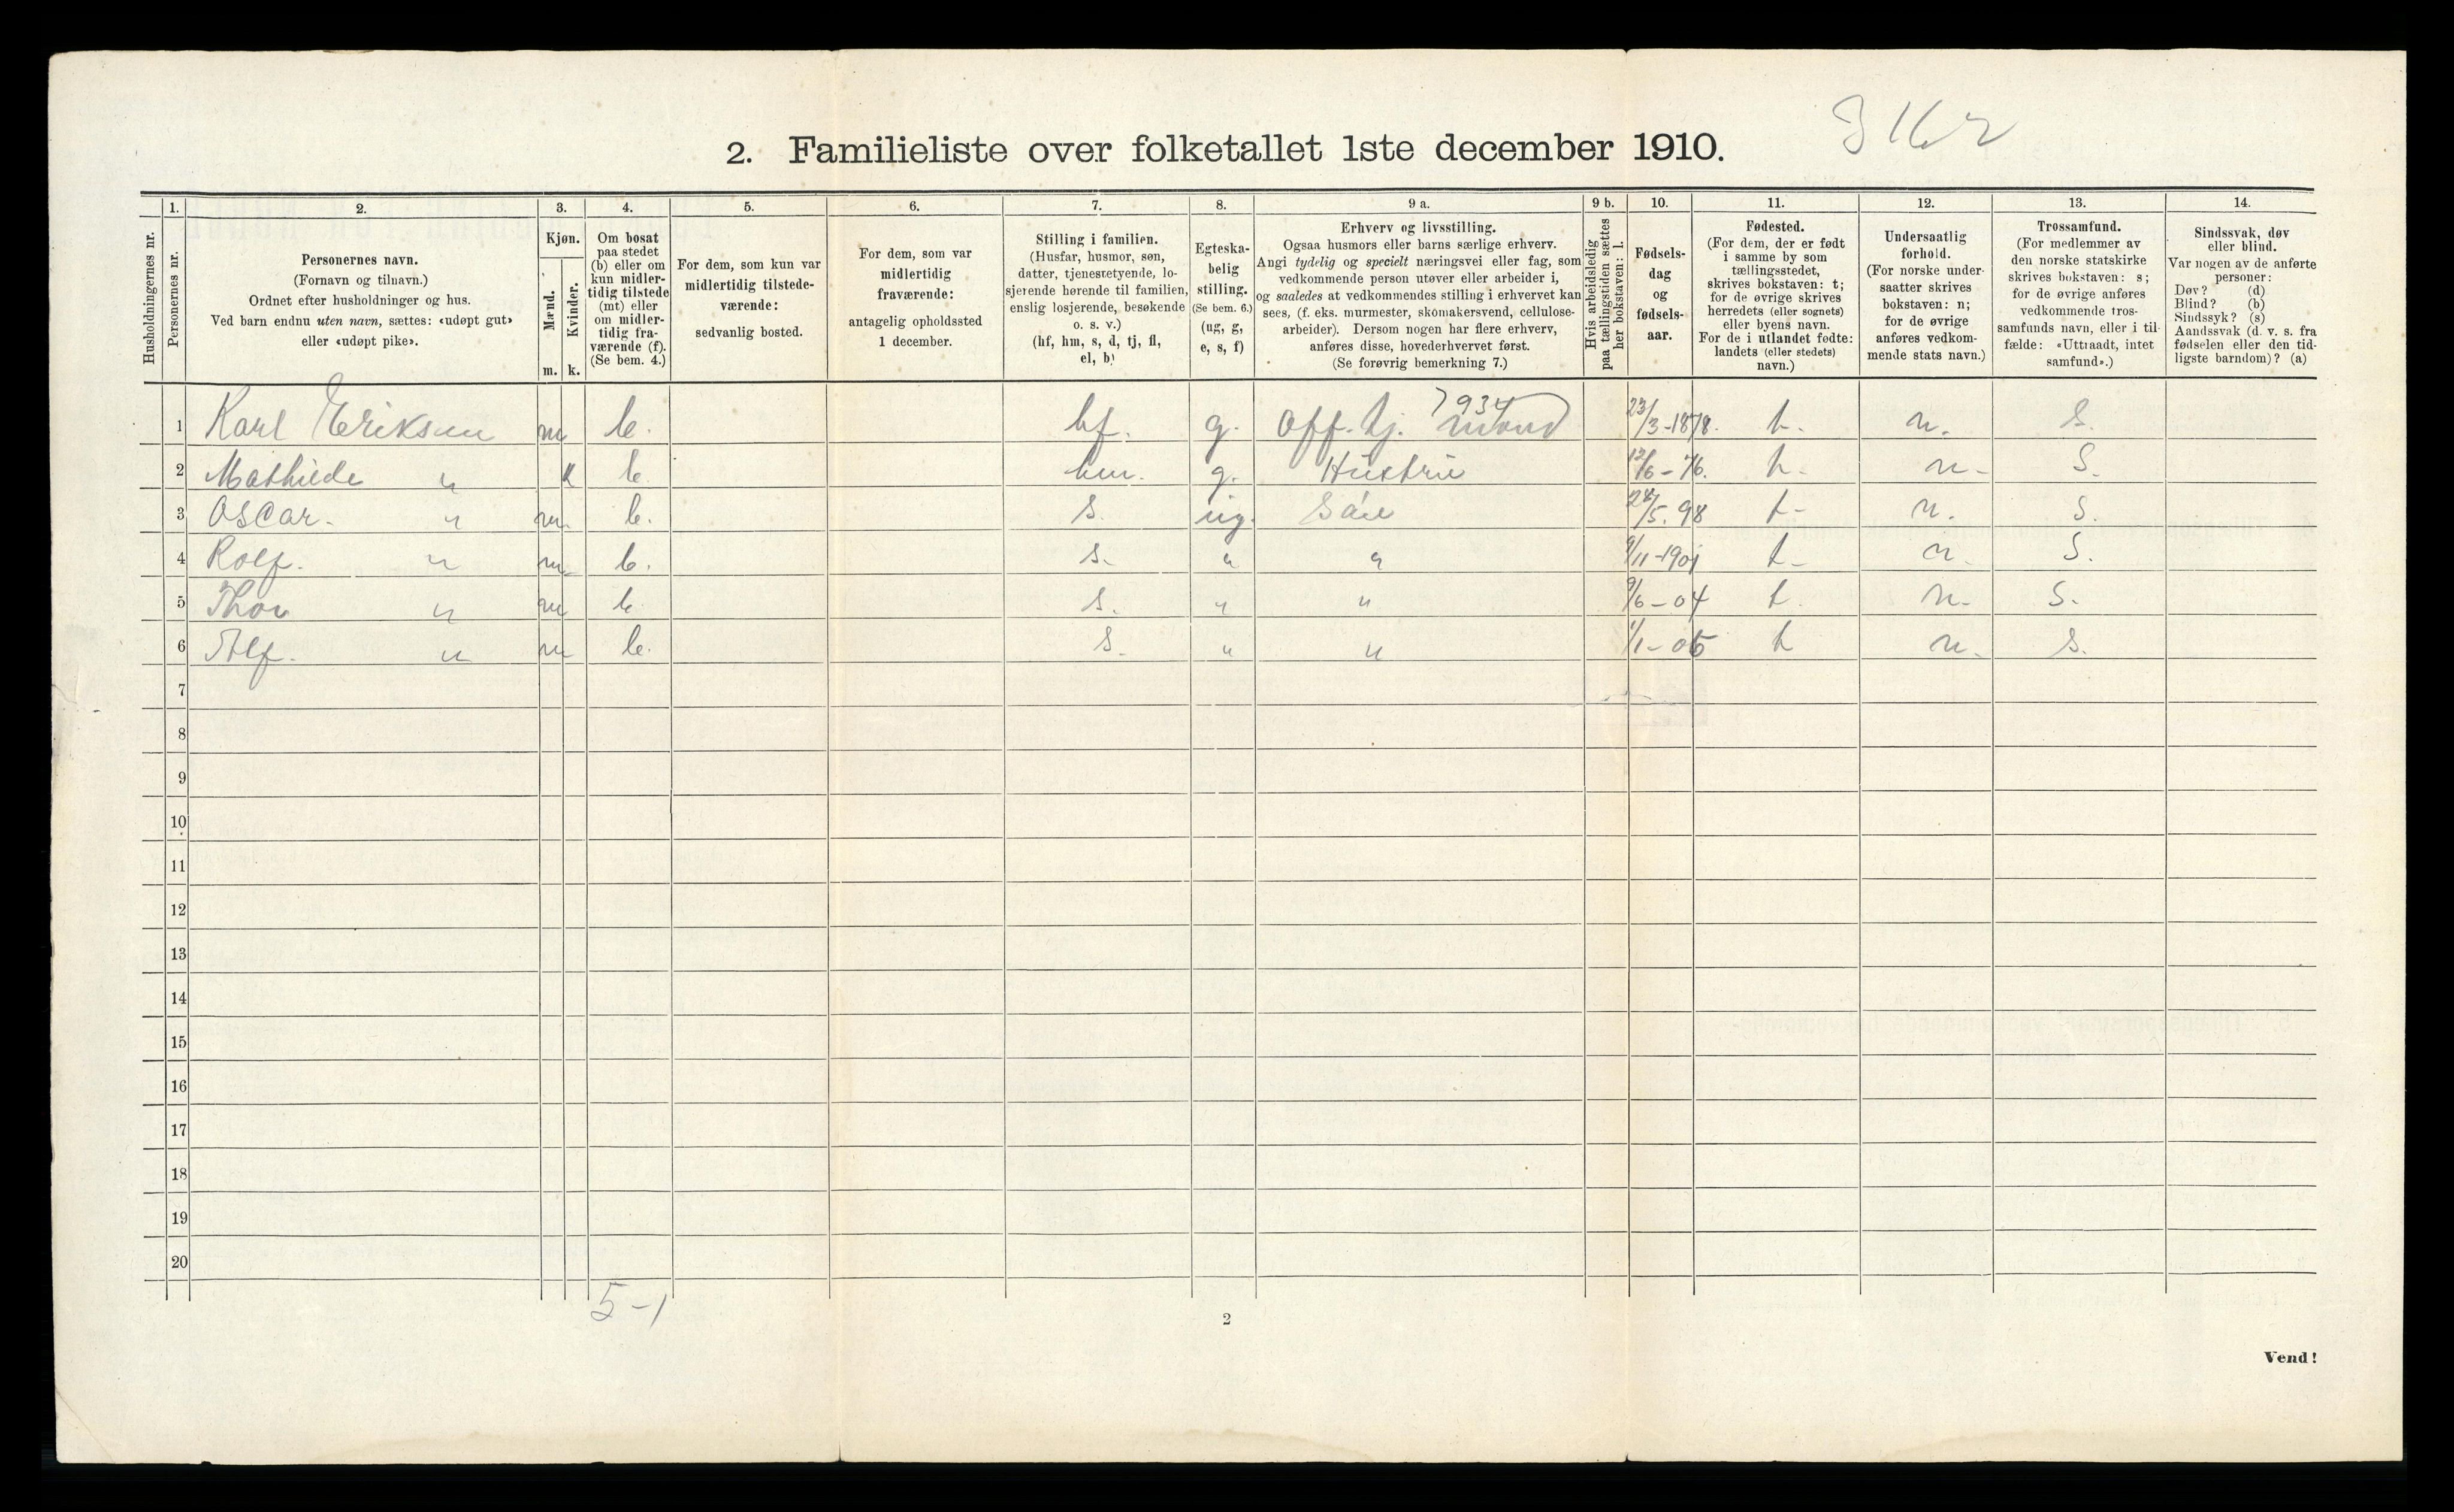 2. Familieliste over folketallet 1ste december 1910.
3 K 2
1. 2. 3. 4. 5. 6. 7. 8. 9 a. 9 b. 10. 11. 12. 13. 14.
Husholdningernes nr.
Personernes nr.
Personernes navn.
(Fornavn og tilnavn.)
Ordnet efter husholdninger og hus.
Ved barn endnu uten navn, sættes: «udøpt gut»
eller «udøpt pike».
Kjøn.
Mænd.
Kvinder.
m. k.
Om bosat
paa stedet
(b) eller om
kun midler-
tidig tilstede
(mt) eller
om midler-
tidig fra-
værende (f).
(Se bem. 4.)
For dem, som kun var
midlertidig tilstede-
værende:
sedvanlig bosted.
For dem, som var
midlertidig
fraværende:
antagelig opholdssted
1 december.
Stilling i familien.
(Husfar, husmor, søn,
datter, tjenestetyende, lo-
sjerende hørende til familien,
enslig losjerende, besøkende
o. s. v.)
(hf, hm, s, d, tj, fl,
el, b)
Egteska-
belig
stilling.
(Se bem. 6.)
(ug, g,
e, s, f)
Erhverv og livsstilling.
Ogsaa husmors eller barns særlige erhverv.
Angi tydelig og specielt næringsvei eller fag, som
vedkommende person utøver eller arbeider i,
og saaledes at vedkommendes stilling i erhvervet kan
sees, (f. eks. murmester, skomakersvend, cellulose-
arbeider). Dersom nogen har flere erhverv,
anføres disse, hovederhvervet først.
(Se forøvrig bemerkning 7.)
Hvis arbeidsledig
paa tællingstiden sættes
her bokstaven: l.
Fødsels-
dag
og
fødsels-
aar.
Fødested.
(For dem, der er født
i samme by som
tællingsstedet,
skrives bokstaven: t;
for de øvrige skrives
herredets (eller sognets)
eller byens navn.
For de i utlandet fødte:
landets (eller stedets)
navn.)
Undersaatlig
forhold.
(For norske under-
saatter skrives
bokstaven: n;
for de øvrige
anføres vedkom-
mende stats navn.)
Trossamfund.
(For medlemmer av
den norske statskirke
skrives bokstaven: s;
for de øvrige anføres
vedkommende tros-
samfunds navn, eller i til-
fælde: «Uttraadt, intet
samfund».)
Sindssvak, døv
eller blind.
Var nogen av de anførte
personer:
Døv? (d)
Blind? (b)
Sindssyk? (s)
Aandssvak (d. v. s. fra
fødselen eller den tid-
ligste barndom)? (a)
7934
1 Karl Eriksen m b. hf. g. Off. tj. mand 23/3-1878. t. n. S.
2 Mathilde " k b. hm. g. Hustru 13/6-76. t. n- S.
3 Oscar. " m. b. S. ug. Søn 24/5. 98 t- n. S.
4 Rolf. " m b. S. " " 9/11-1901 t- n. S.
5 Thor " m b. S. " " 9/6-04 t. n. S.
6 Alf. " m b. S. " " 1/1-05 t n. S.
7
8
9
10
11
12
13
14
15
16
17
18
19
20
5-1
2
Vend!